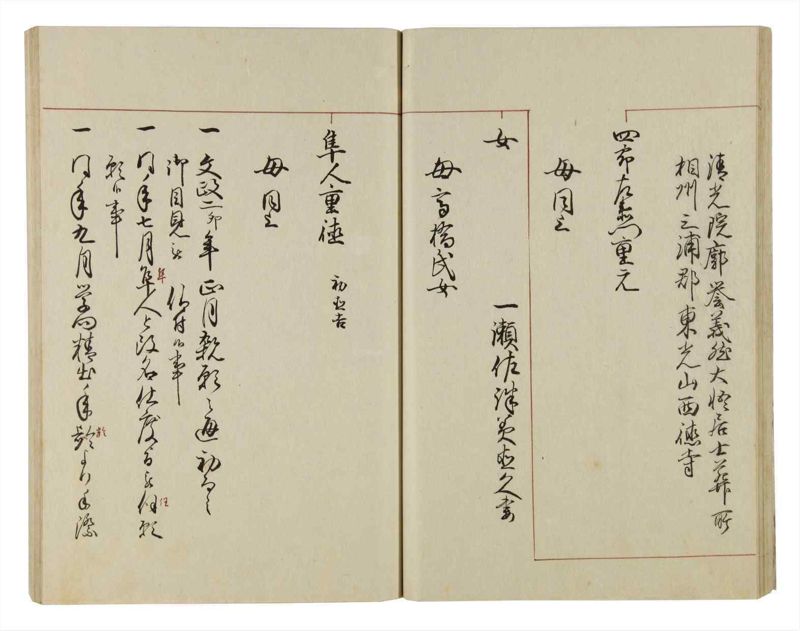 清光院廓誉義雄大悟居士葬所
相州三浦郡東光山西徳寺
四郎左衛門重元
母同上
女
一瀬佐渡直久妻
母高橋氏女
隼人重徳 初
母同上
一 文政二卯年正月親願之通初而之
御目見被 仰付候事
一 同年七月隼人と改名仕度旨被伺願
隼
任
願候事
一 同年九月学問精出年齢より手際
齢